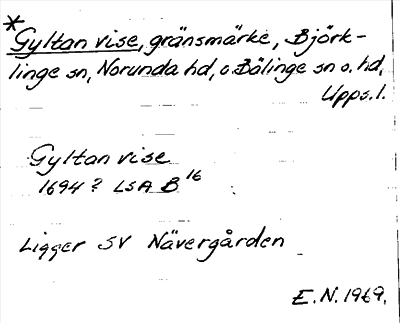 *
Gyltan vise, gränsmärke, Björk-
linge sn, Norunda hd, o Bälinge sn o. hd,
Upps.l.
Gyltan vise
1694? LSA B 16
Ligger SV Nävergården
E.N. 1969.